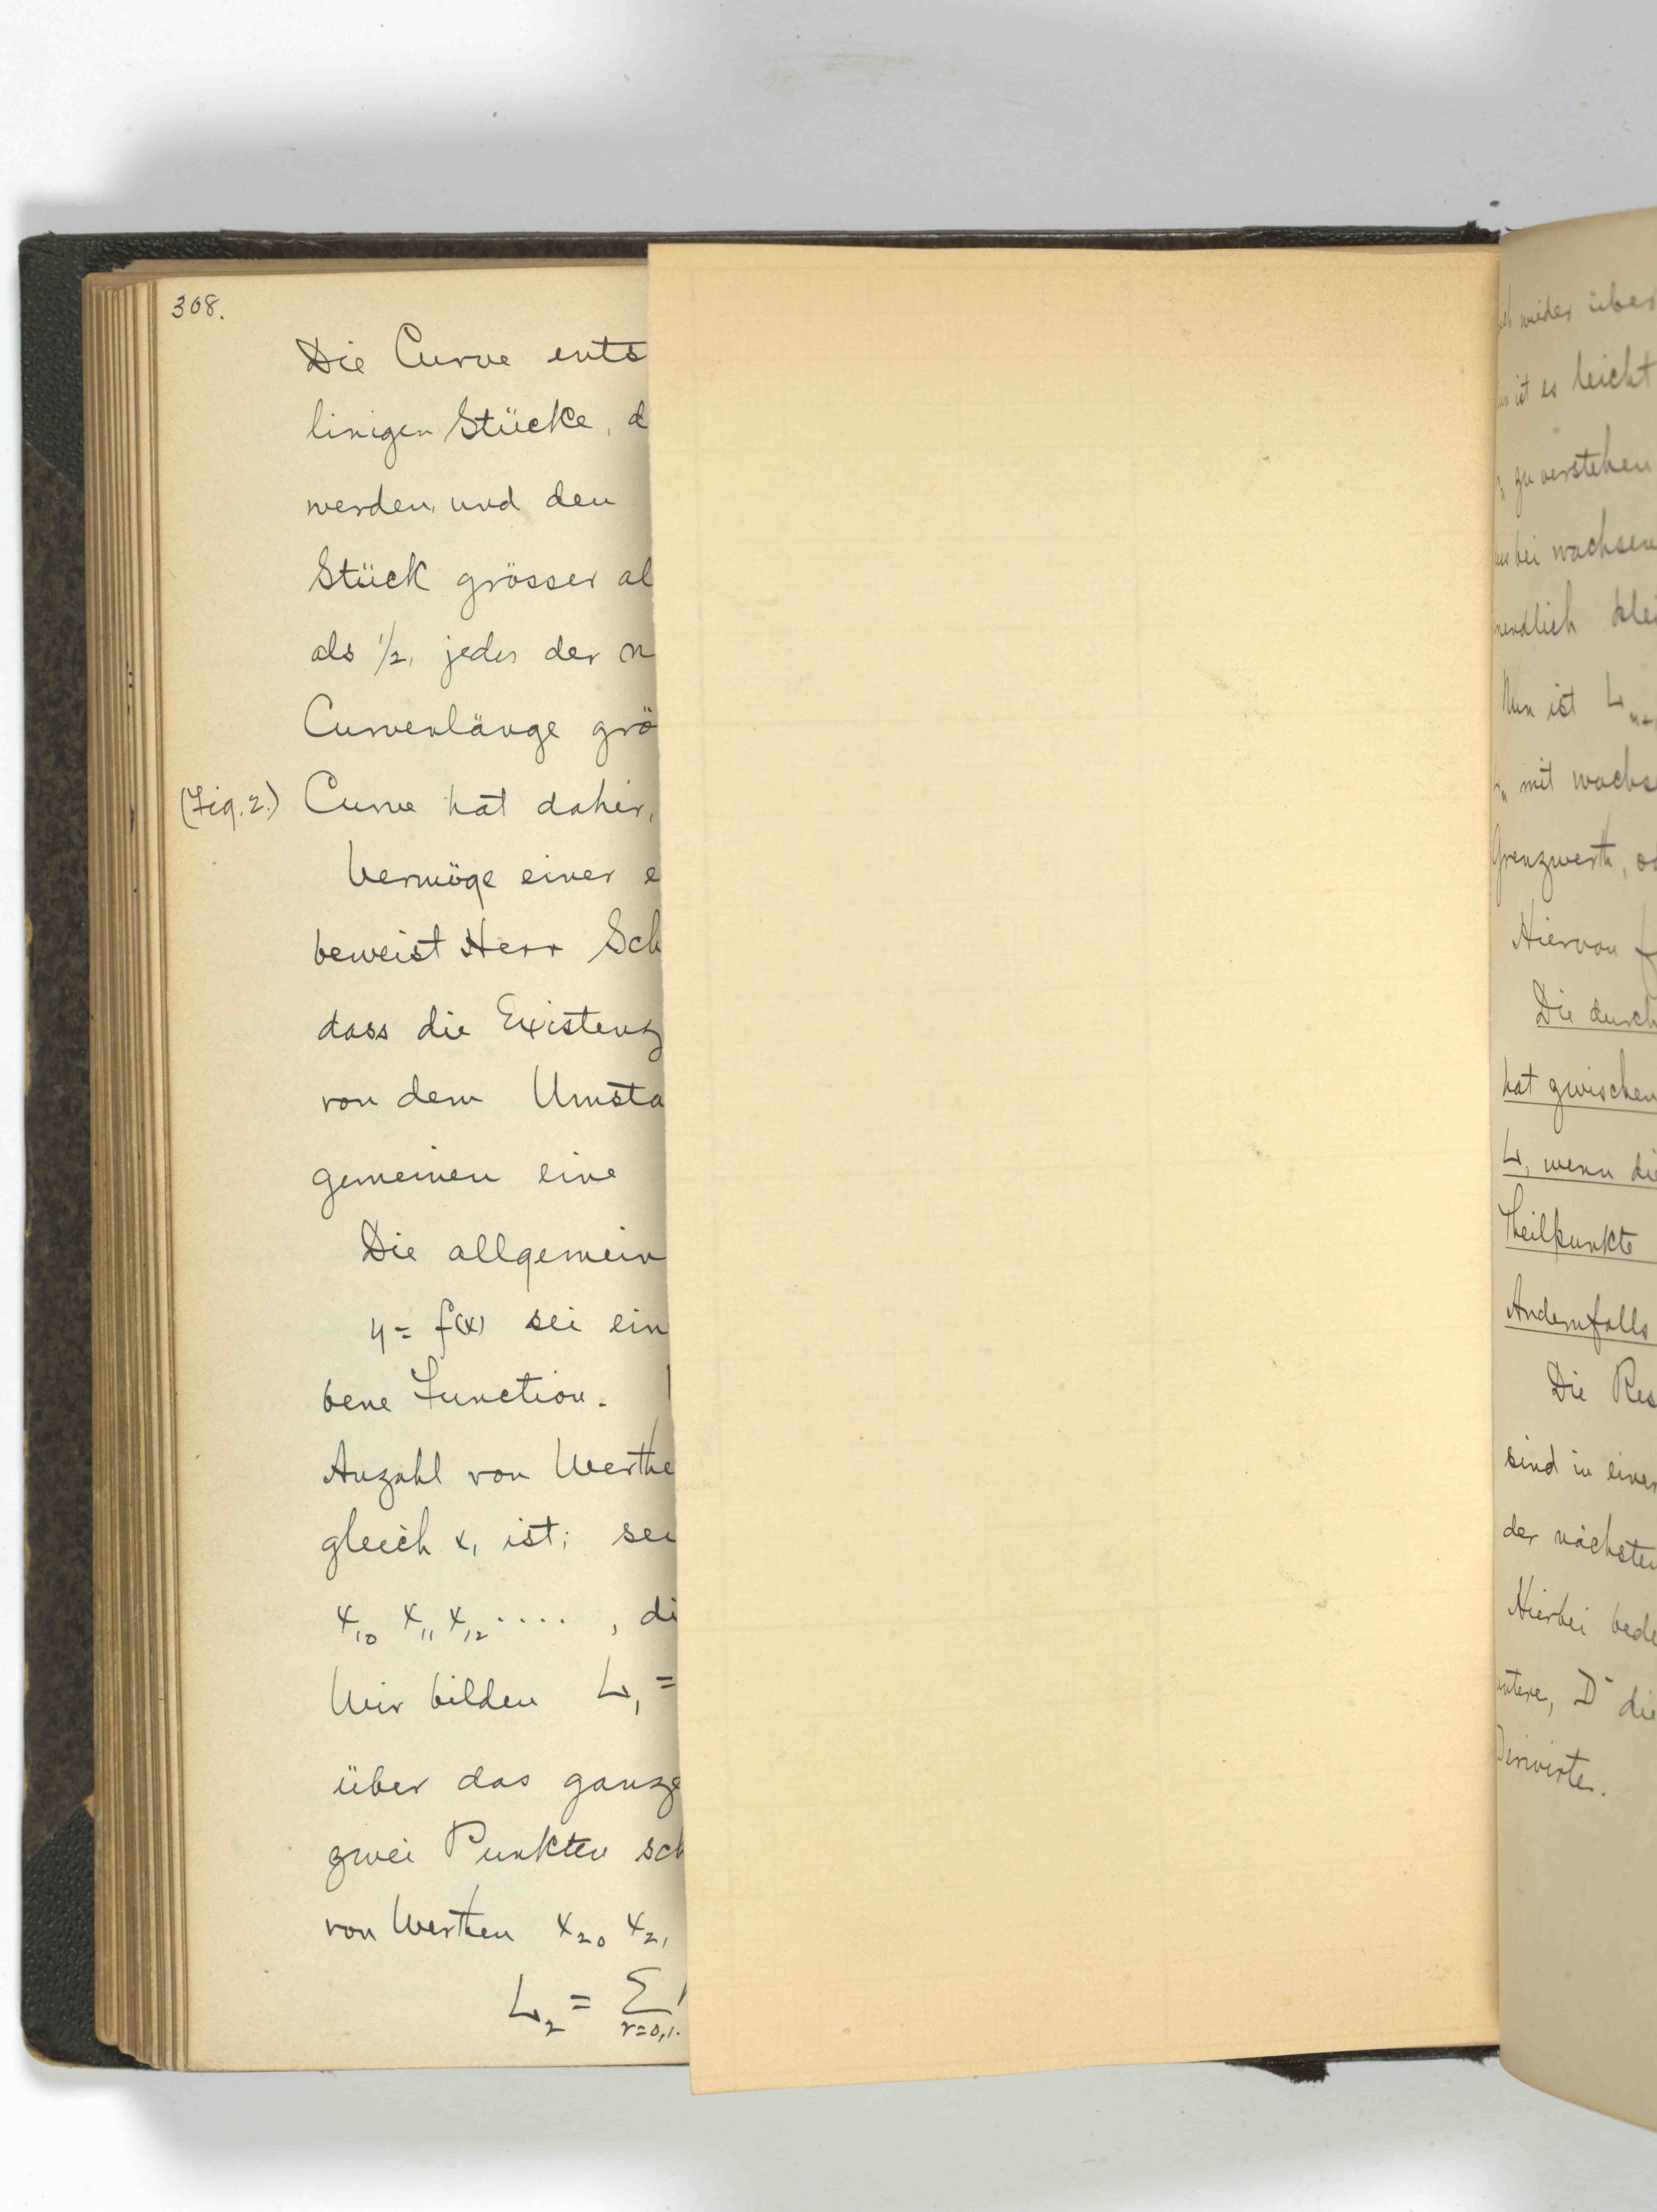 308.
Die Curve ents
linigen Stücke, d
werden, und den
Stück grösser al
als 1/2, jeder der n
Curvenlänge grö
(Fig. 2.) Curve hat daher,
Vermöge einer e
beweist Herr Sch
dass die Existenz
von dem Umsta
gemeinen eine
Die allgemein
y = f(x) sei ein
bene Function.
Anzahl von Werthe
gleich x₁ ist; sei
x₁₀ x₁₁ x₁₂ . . . . , di
Wir bilden L₁ =
über das ganze
zwei Punkten sch
von Werthen x₂₀ x₂₁
L₂ = Σ r=0,1.
wieder über
ist es leicht
zu verstehen
bei wachsen
unendlich klei
Nun ist L
mit wachse
Grenzwerth, od
Hiervon f
Die durch
hat zwischen
L, wenn die
Theilpunkte
Andernfalls
Die Res
sind in einer
der nächsten
Hierbei bede
untere, D⁻ die
Derivirte.